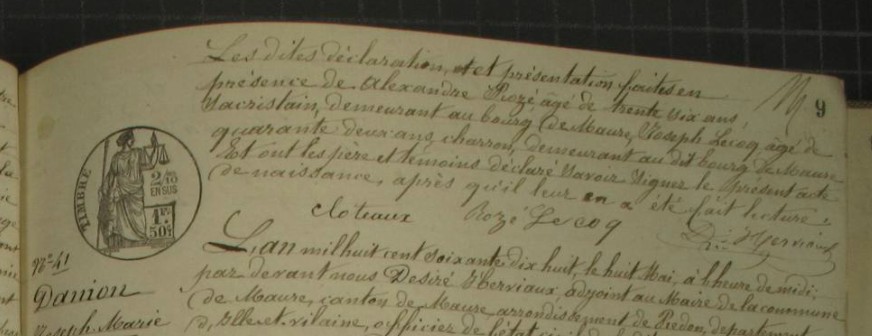 Les dites déclaration, et et présentation faites en
présence de Alexandre Rozé âgé de trente six ans,
Sacristain, demeurant au bourg de Maure, Joseph Lecoq âgé de
quarante deux ans, charron, demeurant au dit bourg de Maure
Et ont les père et témoins déclaré savoir signer le présent acte
de naissance, après qu'il leur en a été fait lecture.
cloteaux Rozé Le coq
9
TIMBRE
2/10
EN SUS
1F
50c
No 41
Danion
Joseph Marie
L'an mil huit cent soixante dix huit, le huit Mai, à heure de midi,
par devant nous Désiré Herviaux, adjoint au Maire de la commune
de Maure, canton de Maure, arrondissement de Redon, département
d'Ille-et-vilaine, officier de l'état